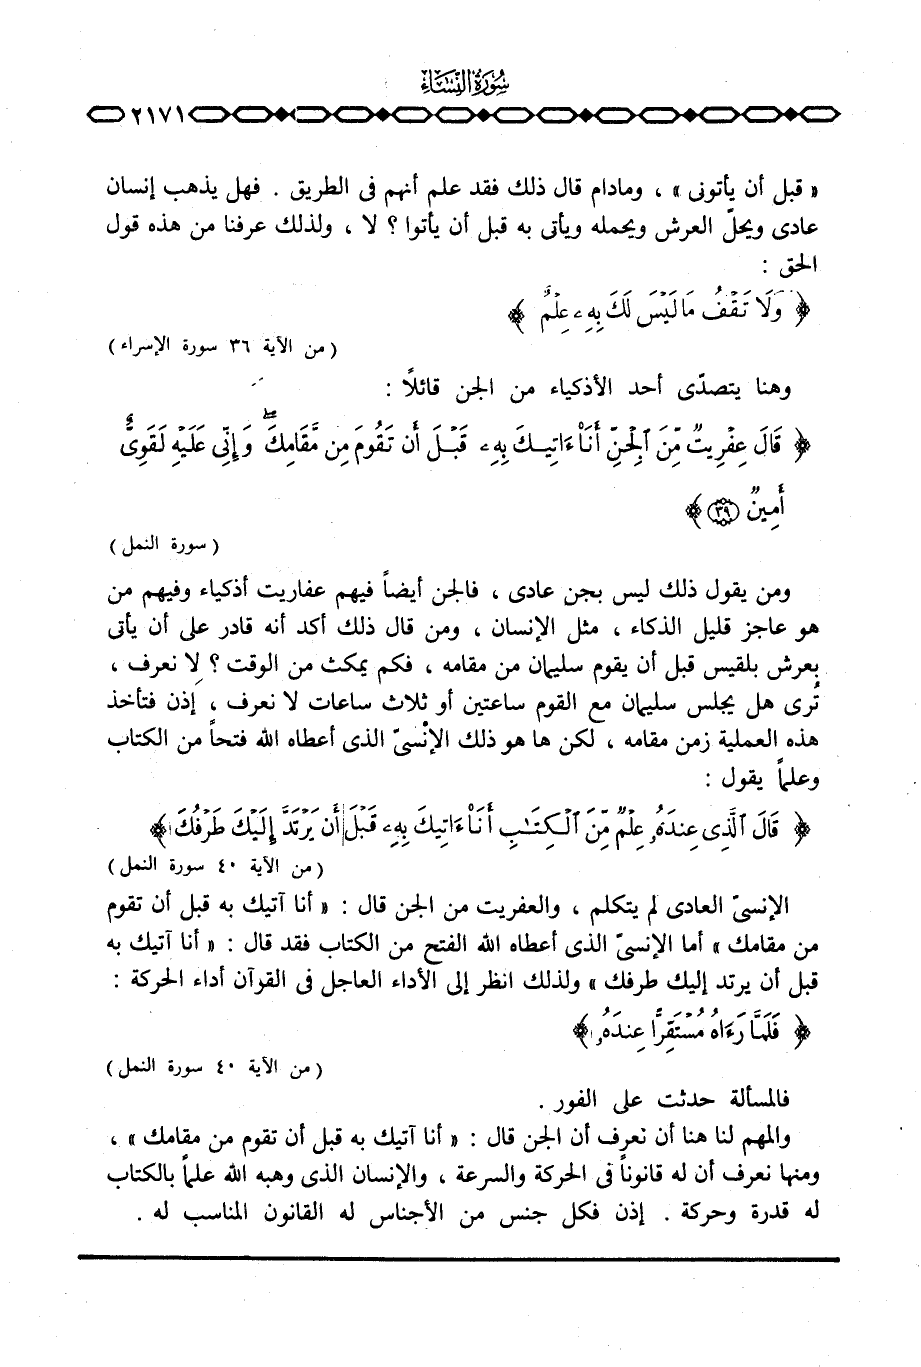 سورة النساء
٢١٧١
« قبل أن يأتونى » ، ومادام قال ذلك فقد علم أنهم فى الطريق . فهل يذهب إنسان
عادى ويحلّ العرش ويحمله ويأتى به قبل أن يأتوا ؟ لا ، ولذلك عرفنا من هذه قول
الحق :
﴿ وَلَا تَقْفُ مَا لَيْسَ لَكَ بِهِۦ عِلْمٌ ﴾
( من الآية ٣٦ سورة الإسراء )
وهنا يتصدّى أحد الأذكياء من الجن قائلاً :
﴿ قَالَ عِفْرِيتٌ مِّنَ ٱلْجِنِّ أَنَا۠ ءَاتِيكَ بِهِۦ قَبْلَ أَن تَقُومَ مِن مَّقَامِكَ ۖ وَإِنِّى عَلَيْهِ لَقَوِىٌّ
أَمِينٌ ٣٩ ﴾
( سورة النمل )
ومن يقول ذلك ليس بجن عادى ، فالجن أيضاً فيهم عفاريت أذكياء وفيهم من
هو عاجز قليل الذكاء ، مثل الإنسان ، ومن قال ذلك أكد أنه قادر على أن يأتى
بعرش بلقيس قبل أن يقوم سليمان من مقامه ، فكم يمكث من الوقت ؟ لا نعرف ،
تُرى هل يجلس سليمان مع القوم ساعتين أو ثلاث ساعات لا نعرف ، إذن فتأخذ
هذه العملية زمن مقامه ، لكن ها هو ذلك الإنْسىّ الذى أعطاه الله فتحاً من الكتاب
وعلماً يقول :
﴿ قَالَ ٱلَّذِى عِندَهُۥ عِلْمٌ مِّنَ ٱلْكِتَٰبِ أَنَا۠ ءَاتِيكَ بِهِۦ قَبْلَ أَن يَرْتَدَّ إِلَيْكَ طَرْفُكَ ﴾
( من الآية ٤٠ سورة النمل )
الإنسىّ العادى لم يتكلم ، والعفريت من الجن قال : « أنا آتيك به قبل أن تقوم
من مقامك » أما الإنسىّ الذى أعطاه الله الفتح من الكتاب فقد قال : « أنا آتيك به
قبل أن يرتد إليك طرفك » ولذلك انظر إلى الأداء العاجل فى القرآن أداء الحركة :
﴿ فَلَمَّا رَءَاهُ مُسْتَقِرًّا عِندَهُۥ ﴾
( من الآية ٤٠ سورة النمل )
فالمسألة حدثت على الفور .
والمهم لنا هنا أن نعرف أن الجن قال : « أنا آتيك به قبل أن تقوم من مقامك » ،
ومنها نعرف أن له قانوناً فى الحركة والسرعة ، والإنسان الذى وهبه الله علماً بالكتاب
له قدرة وحركة . إذن فكل جنس من الأجناس له القانون المناسب له .